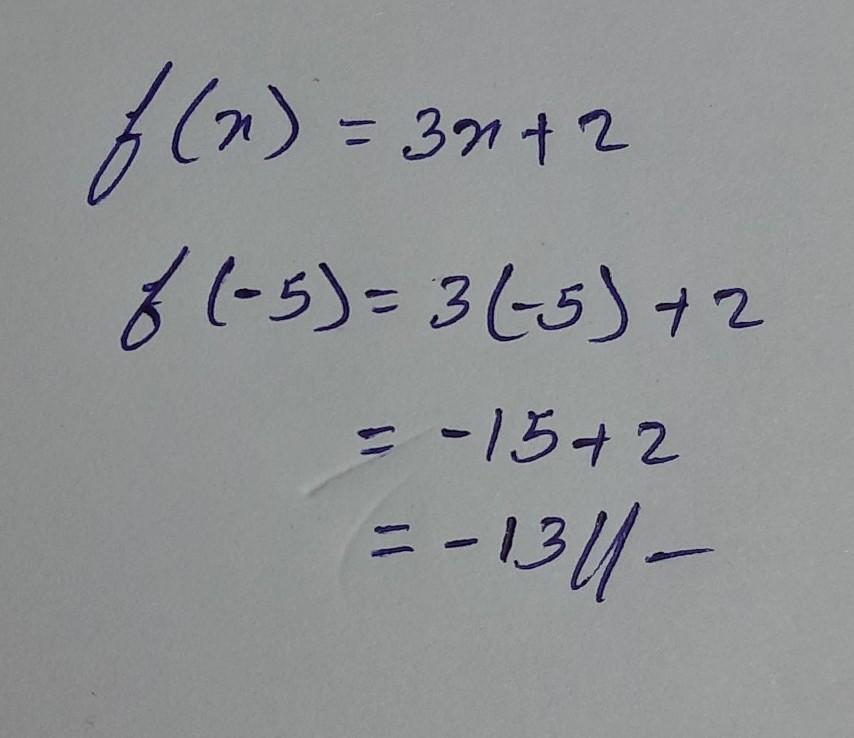 f(x) = 3x + 2
f(-5) = 3(-5) + 2
= -15 + 2
= -13 // —